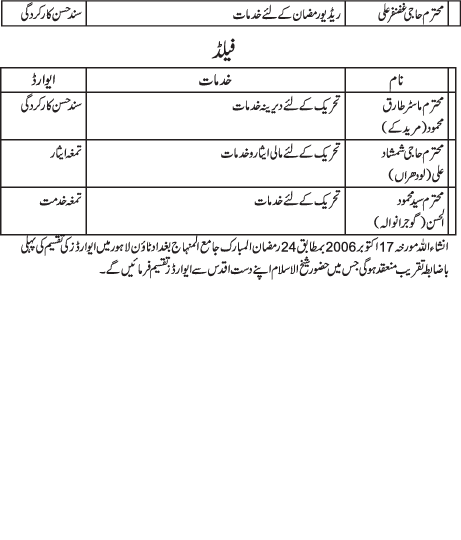 محترم حاجی غضنفر علی	ریڈیو رمضان کے لئے خدمات	سند حسن کارکردگی
فیلڈ
نام	خدمات	ایوارڈ
محترم ماسٹر طارق	تحریک کے لئے دیرینہ خدمات	سند حسن کارکردگی
محمود (مریدکے)
محترم حاجی شمشاد	تحریک کے لئے مالی ایثار و خدمات	تمغہ ایثار
علی (لودھراں)
محترم سید محمود	تحریک کے لئے خدمات	تمغہ خدمت
الحسن (گوجرانوالہ)
انشاء اللہ مورخہ 17 اکتوبر 2006 بمطابق 24 رمضان المبارک جامع المنہاج بغداد ٹاؤن لاہور میں ایوارڈز کی تقسیم کی پہلی
باضابطہ تقریب منعقد ہوگی جس میں حضور شیخ الاسلام اپنے دست اقدس سے ایوارڈز تقسیم فرمائیں گے۔